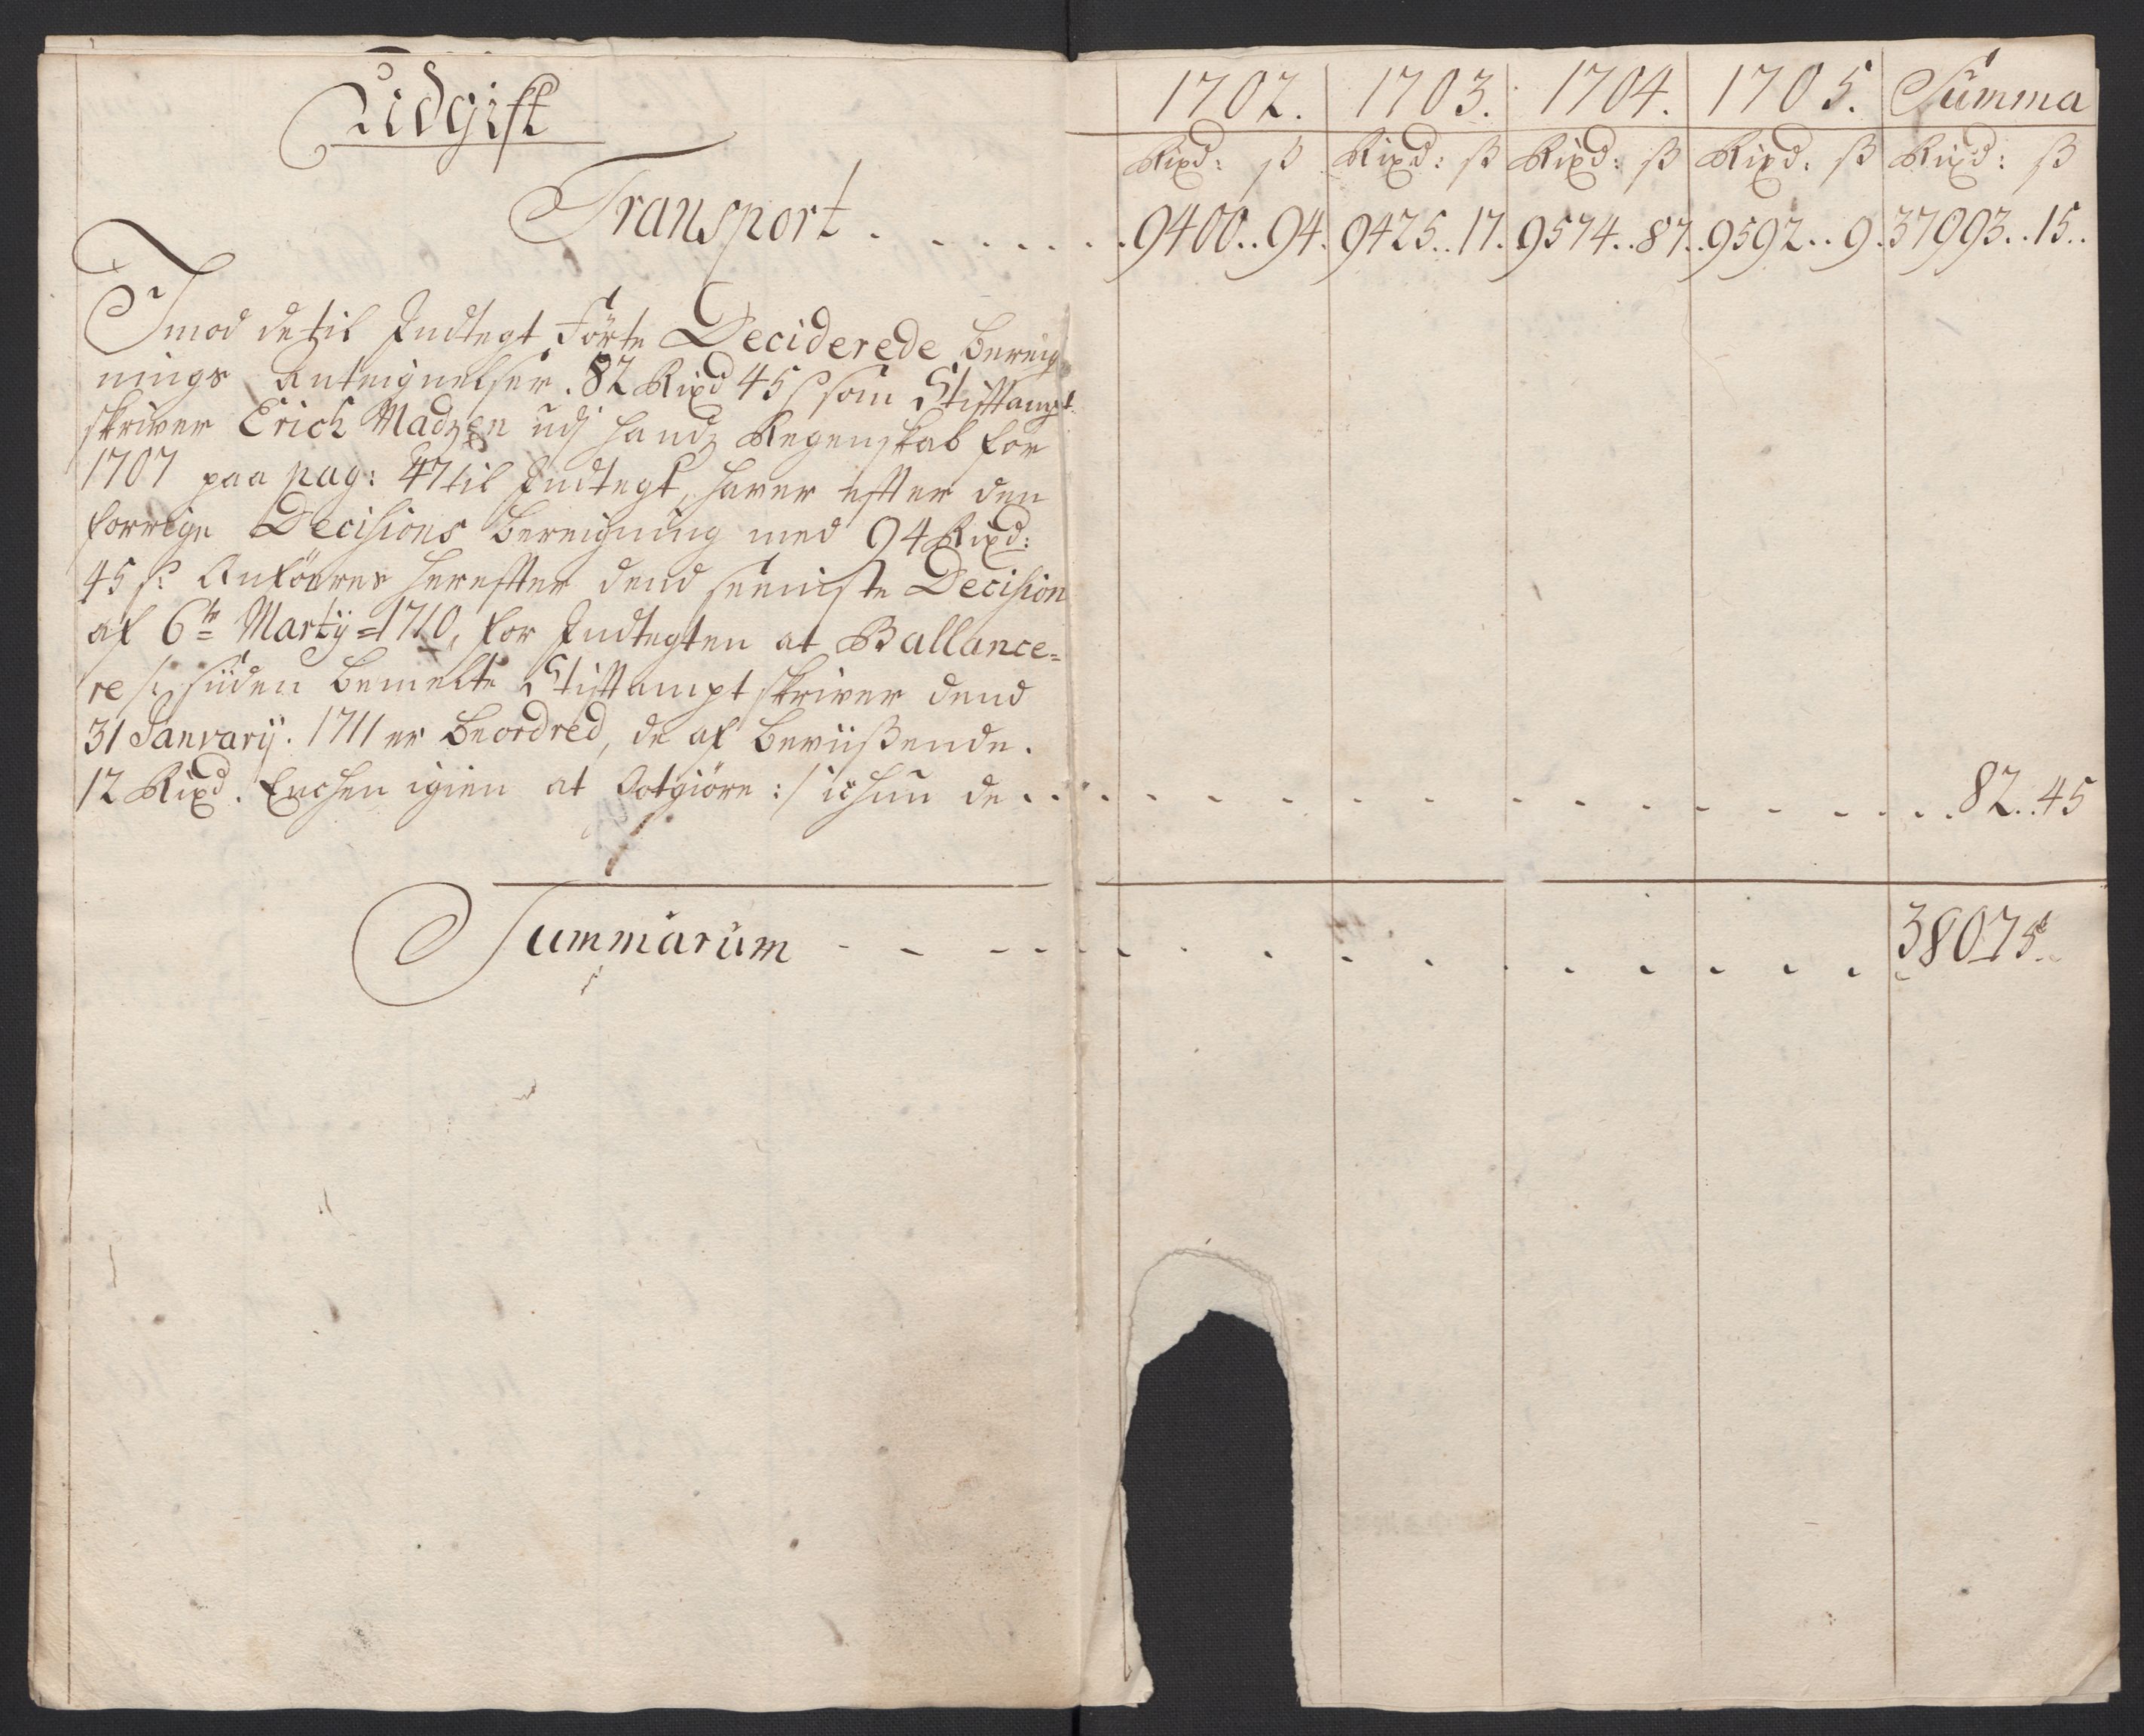 Udgift
1702. 1703. 1704. 1705. Summa
Rixd: ß Rixd: ß Rixd: ß Rixd: ß Rixd: ß
Transport . . . . . . . 9400..94. 9425..17. 9574..87. 9592..9. 37993..15..
Imod de til Indtegt Förte Deciderede bereig
nings Anteignelser. 82 Rixd 45 ß som Stifftampt
skriver Erich Madzen udj handz Regenskab for
1707 paa pag: 47 til Indtegt, haver efter den
forrige Decisions bereigning med 94 Rixd:
45 ß. Anföres herefter dend seeniste Decision
af 6te Martij 1710, for Indtegten at Ballance=
re /: siiden bemelte Stifftamptskriver dend
31 Janvarij. 1711 er beordred, de af beviißende.
12 Rixd. igien at Gotgiöre :/ ichun de . . . . . . . . . . . . . 82..45
Summarum - - - - - - - - - - - 38075..